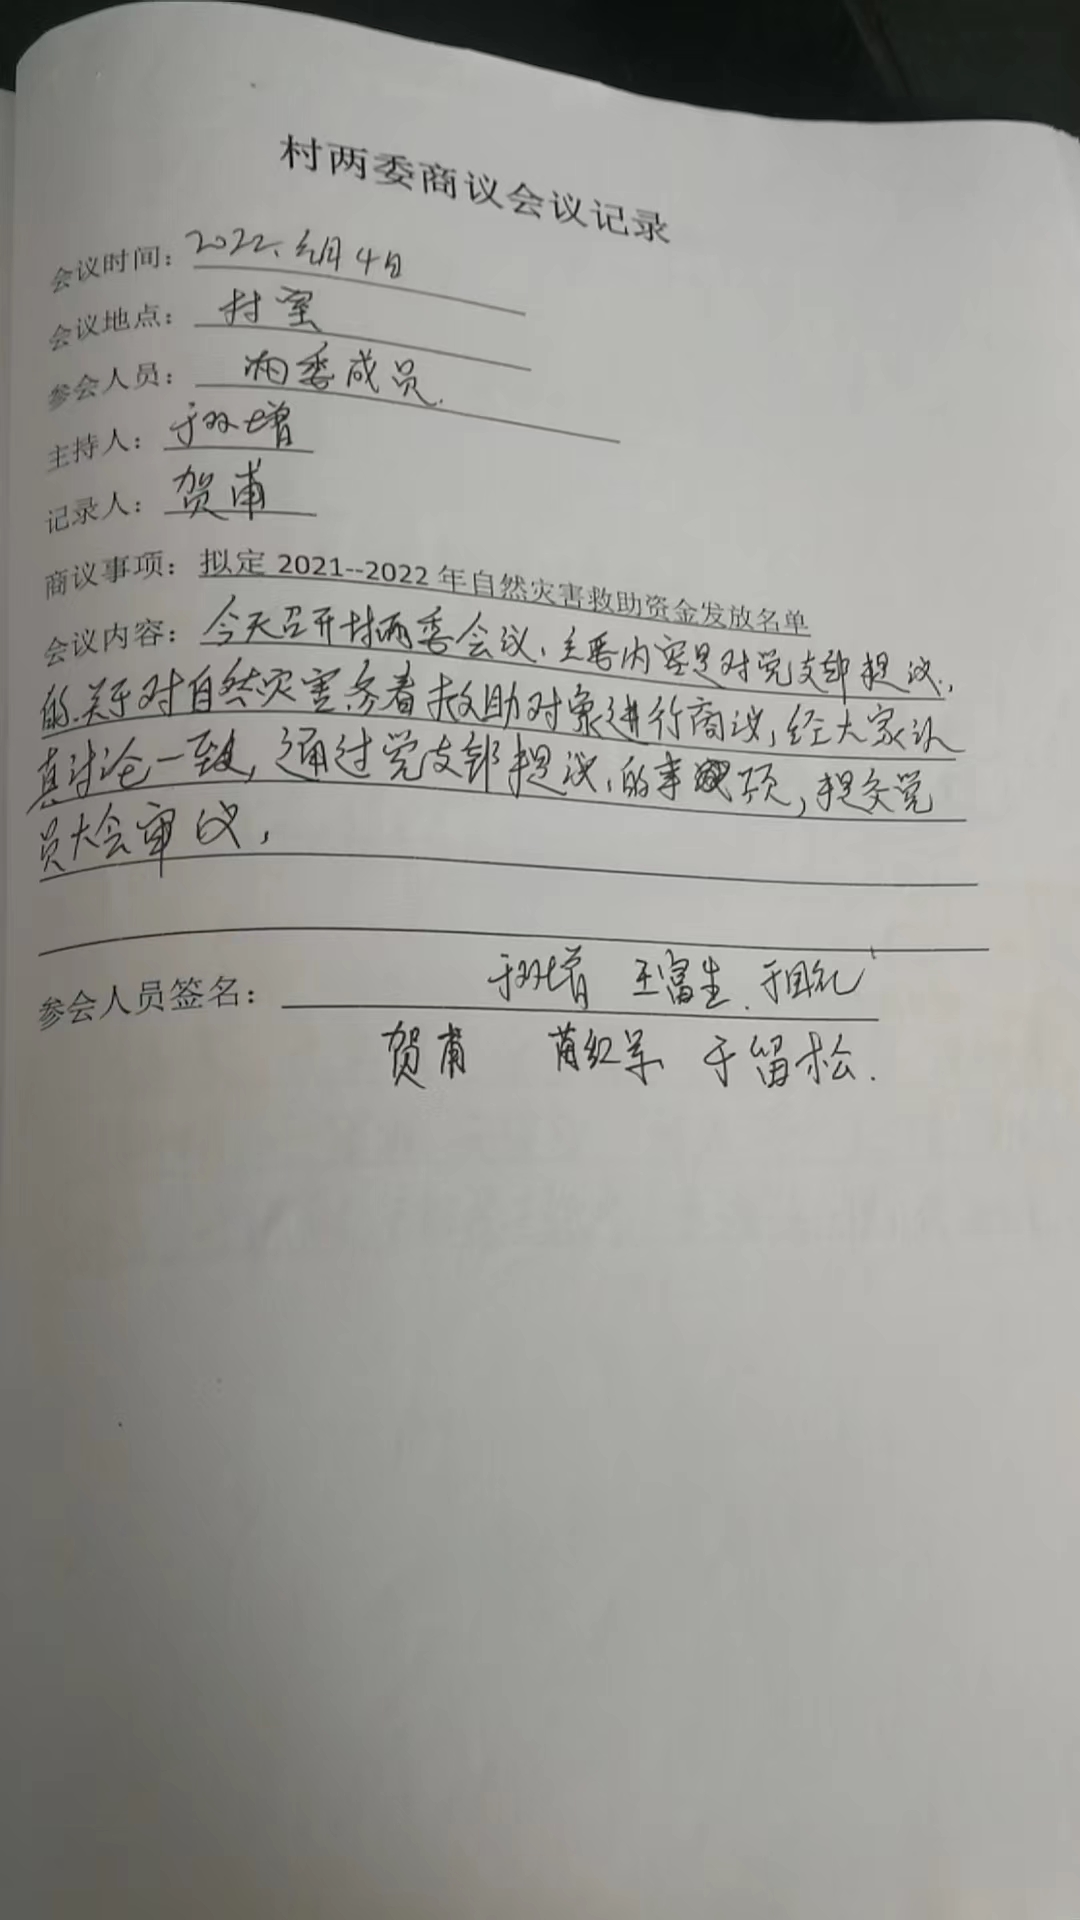 村两委商议会议记录
会议时间：2022、元月4日
会议地点：村室
参会人员：两委成员.
主持人：于双增
记录人：贺甫
商议事项：拟定 2021--2022 年自然灾害救助资金发放名单
会议内容：今天召开村两委会议、主要内容是对党支部提议.,
的.关于对自然灾害冬春救助对象进行商议,经大家认
真讨论一致,通过党支部提议.的事项,提交党
员大会审议,
参会人员签名：于双增 王富生.于国礼
贺甫 红军 于留松.